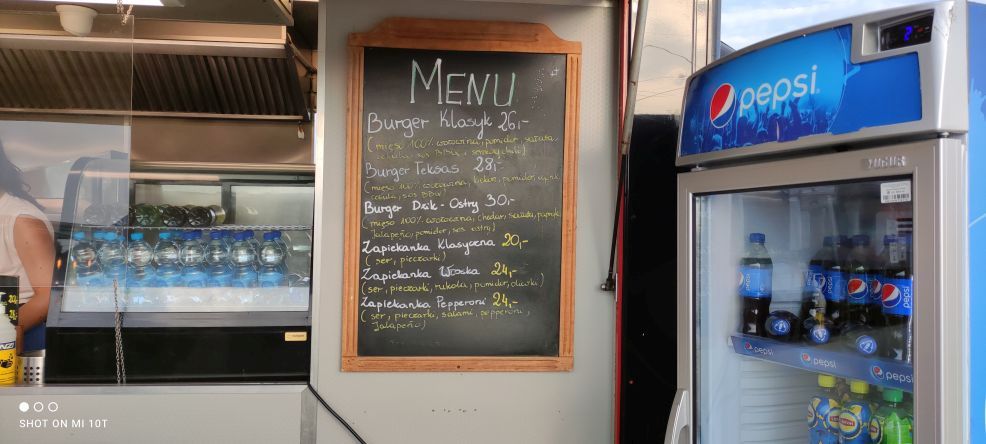 MENU
Burger Klasyk 26,-
(mięso 100% wołowina, pomidor, sałata,
cebula, sos BBQ,
Burger Teksas 28,-
(mięso 100% wołowina, bekon, pomidor,
cebula, sos BBQ)
Burger Dzik - Ostry 30,-
(mięso 100% wołowina, chedar, sałata, papryk.
Jalapeño, pomidor, sos ostry)
Zapiekanka Klasyczna 20,-
(ser, pieczarki)
Zapiekanka Włoska 24,-
(ser, pieczarki, rukola, pomidor, oliwka)
Zapiekanka Pepperoni 24,-
(ser, pieczarki, salami, pepperoni,
Jalapeño)
pepsi
pepsi
pepsi
pepsi
SHOT ON MI 10T